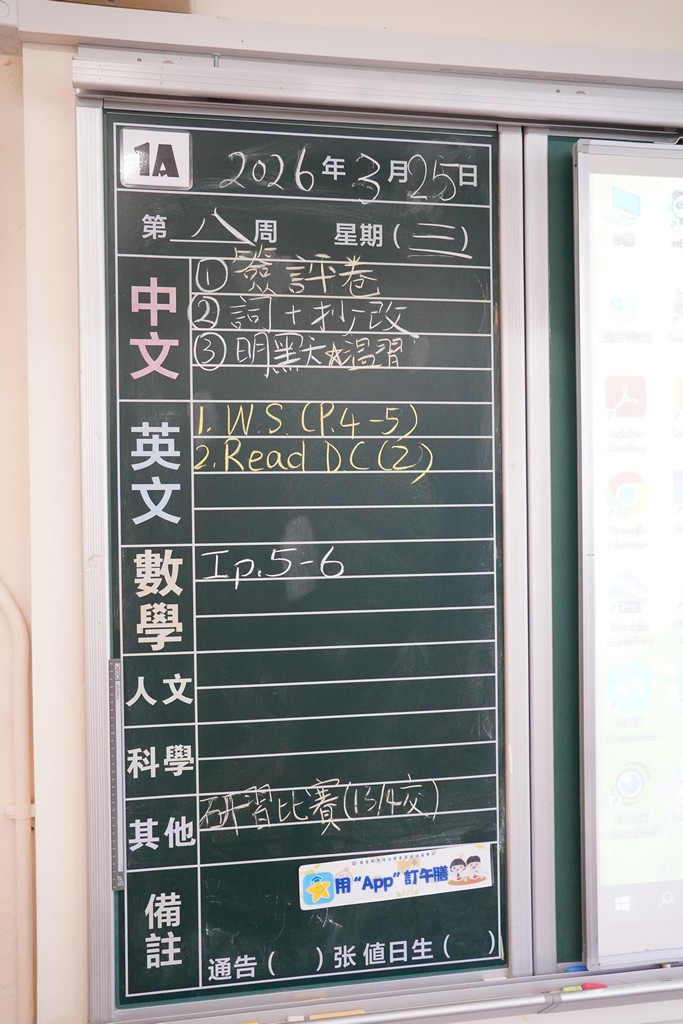 1A
2026年3月25日
第八周 星期(三)
中文
① 簽評卷
② 詞+抄改
③ 明默天☆溫習
英文
1. W.S. (P.4-5)
2. Read DC(2)
數學
Ip.5-6
人文
科學
其他
研習比賽(13/4交)
備註
用“App”訂午膳
通告( )张 值日生( )